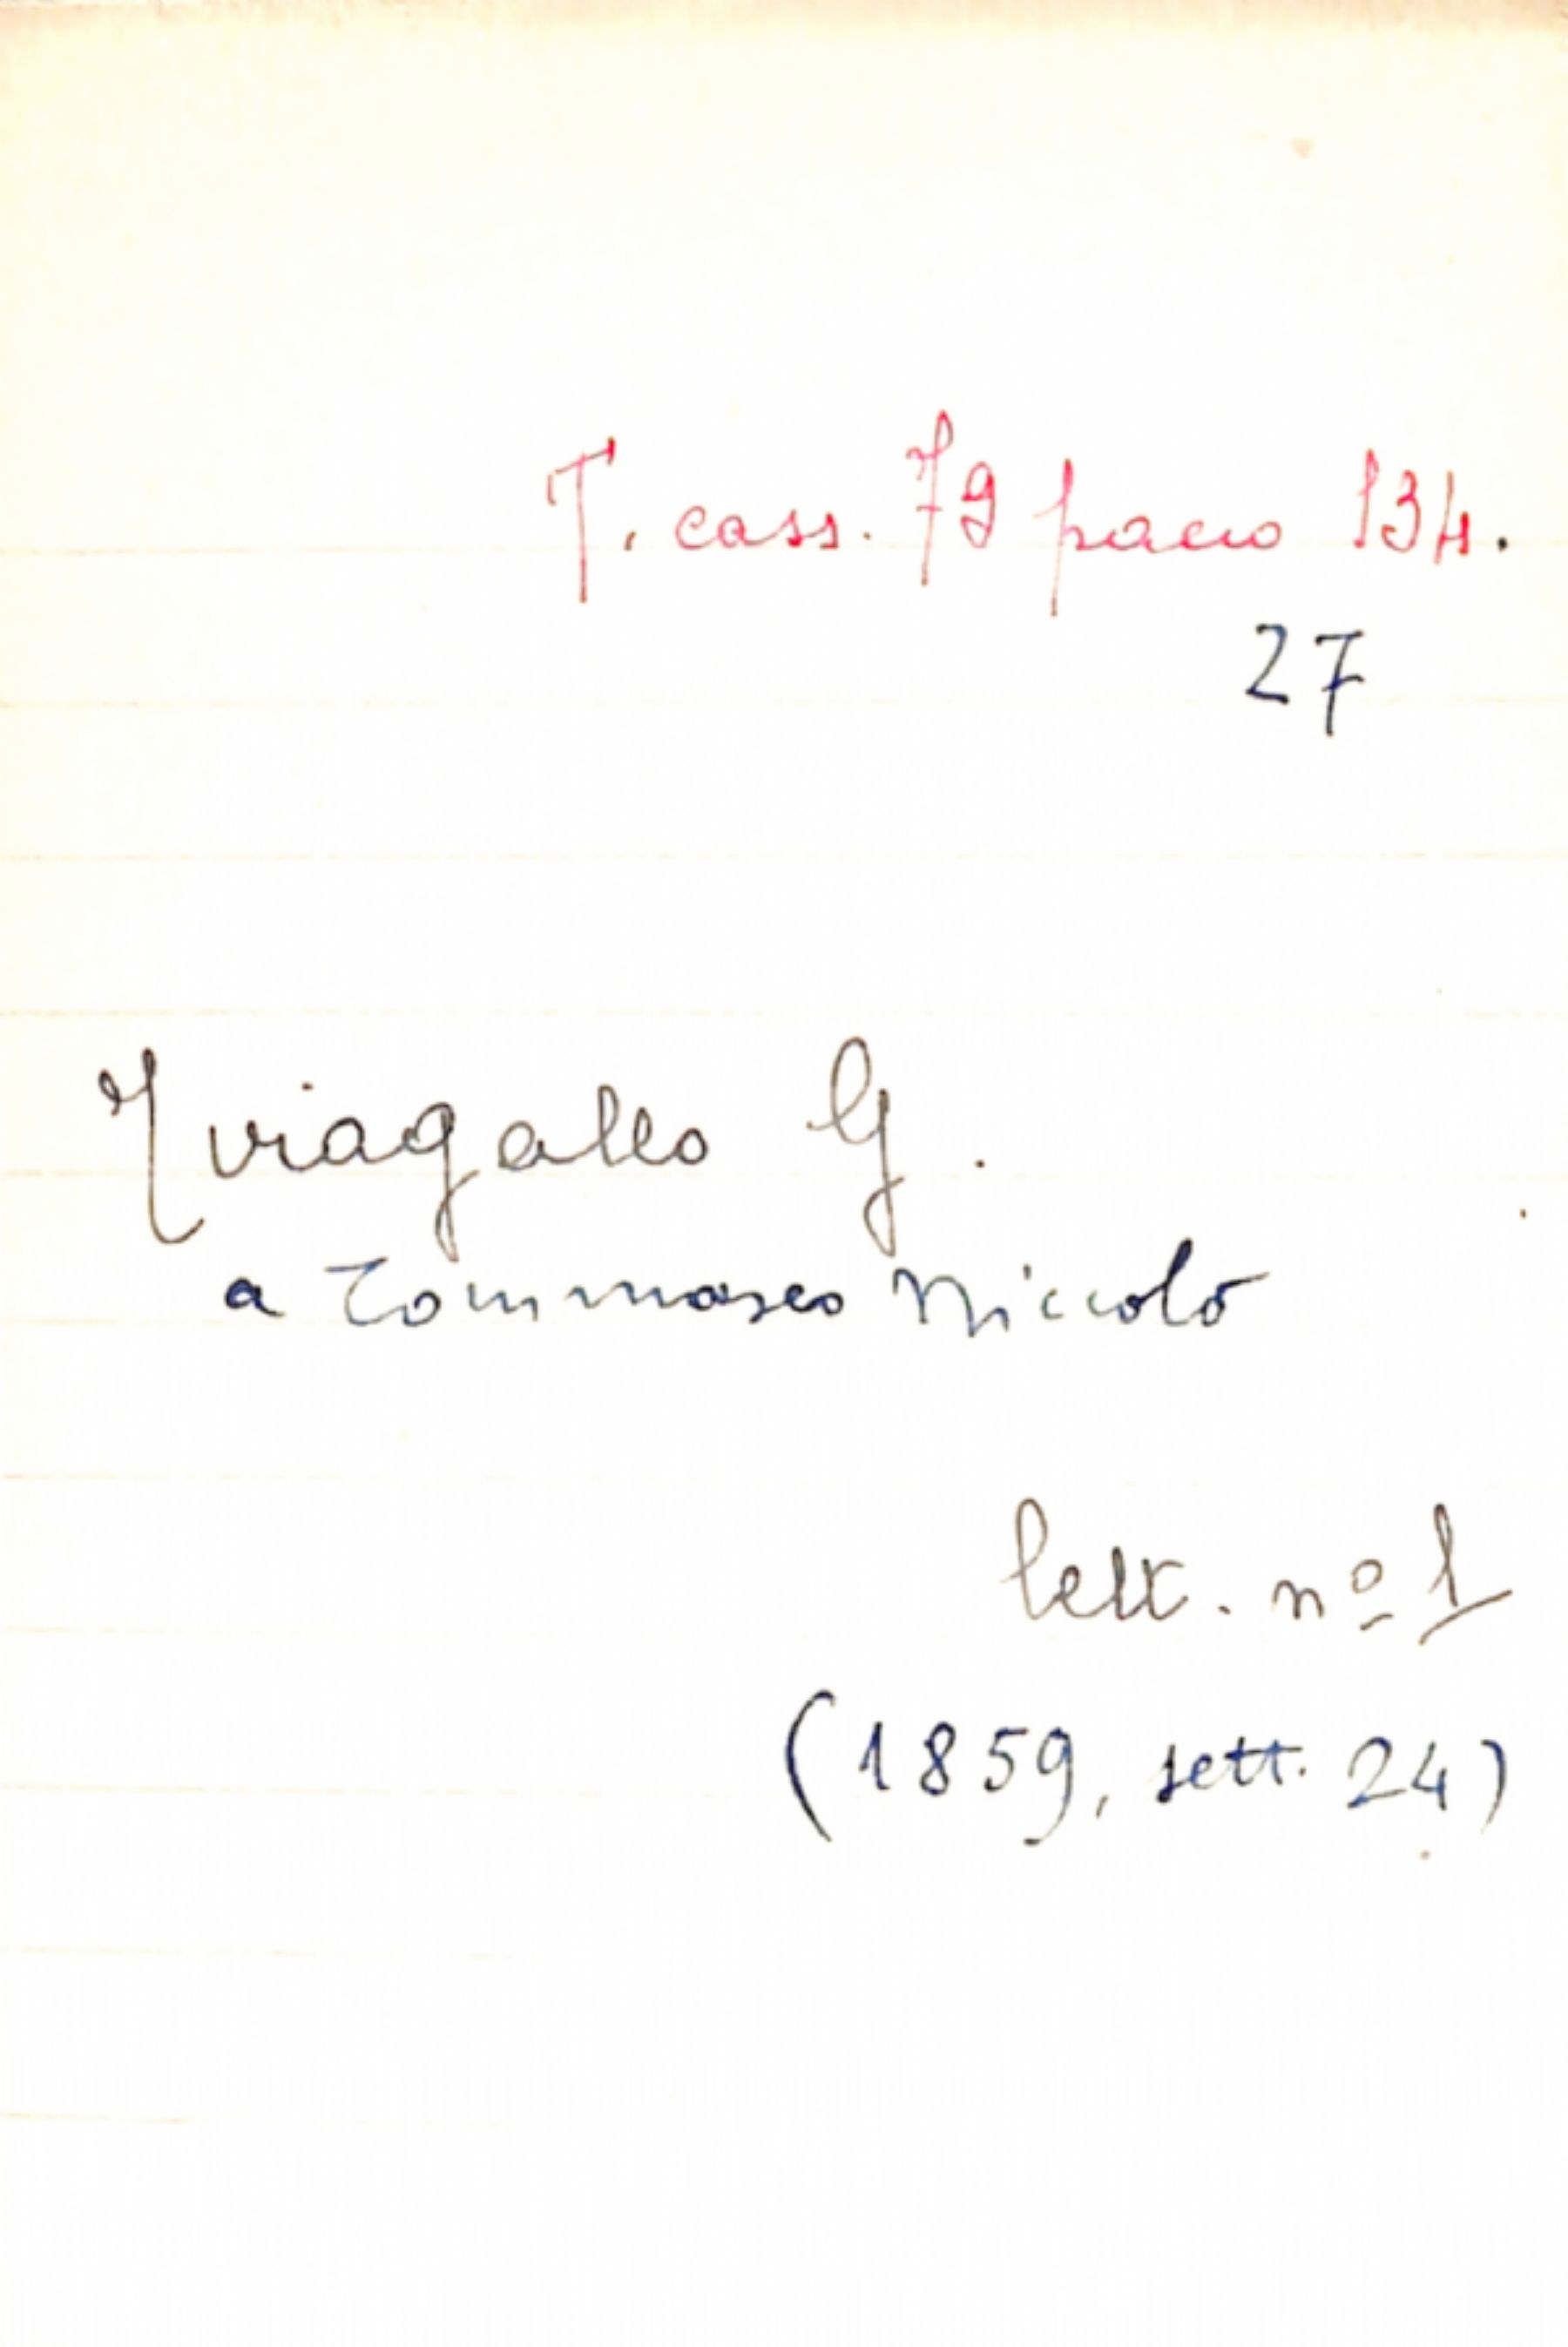 T. cass. 79 pacco 134.
27
Triagallo G.
a Tommaseo Niccolò
lett. nº 1
(1859, sett. 24)